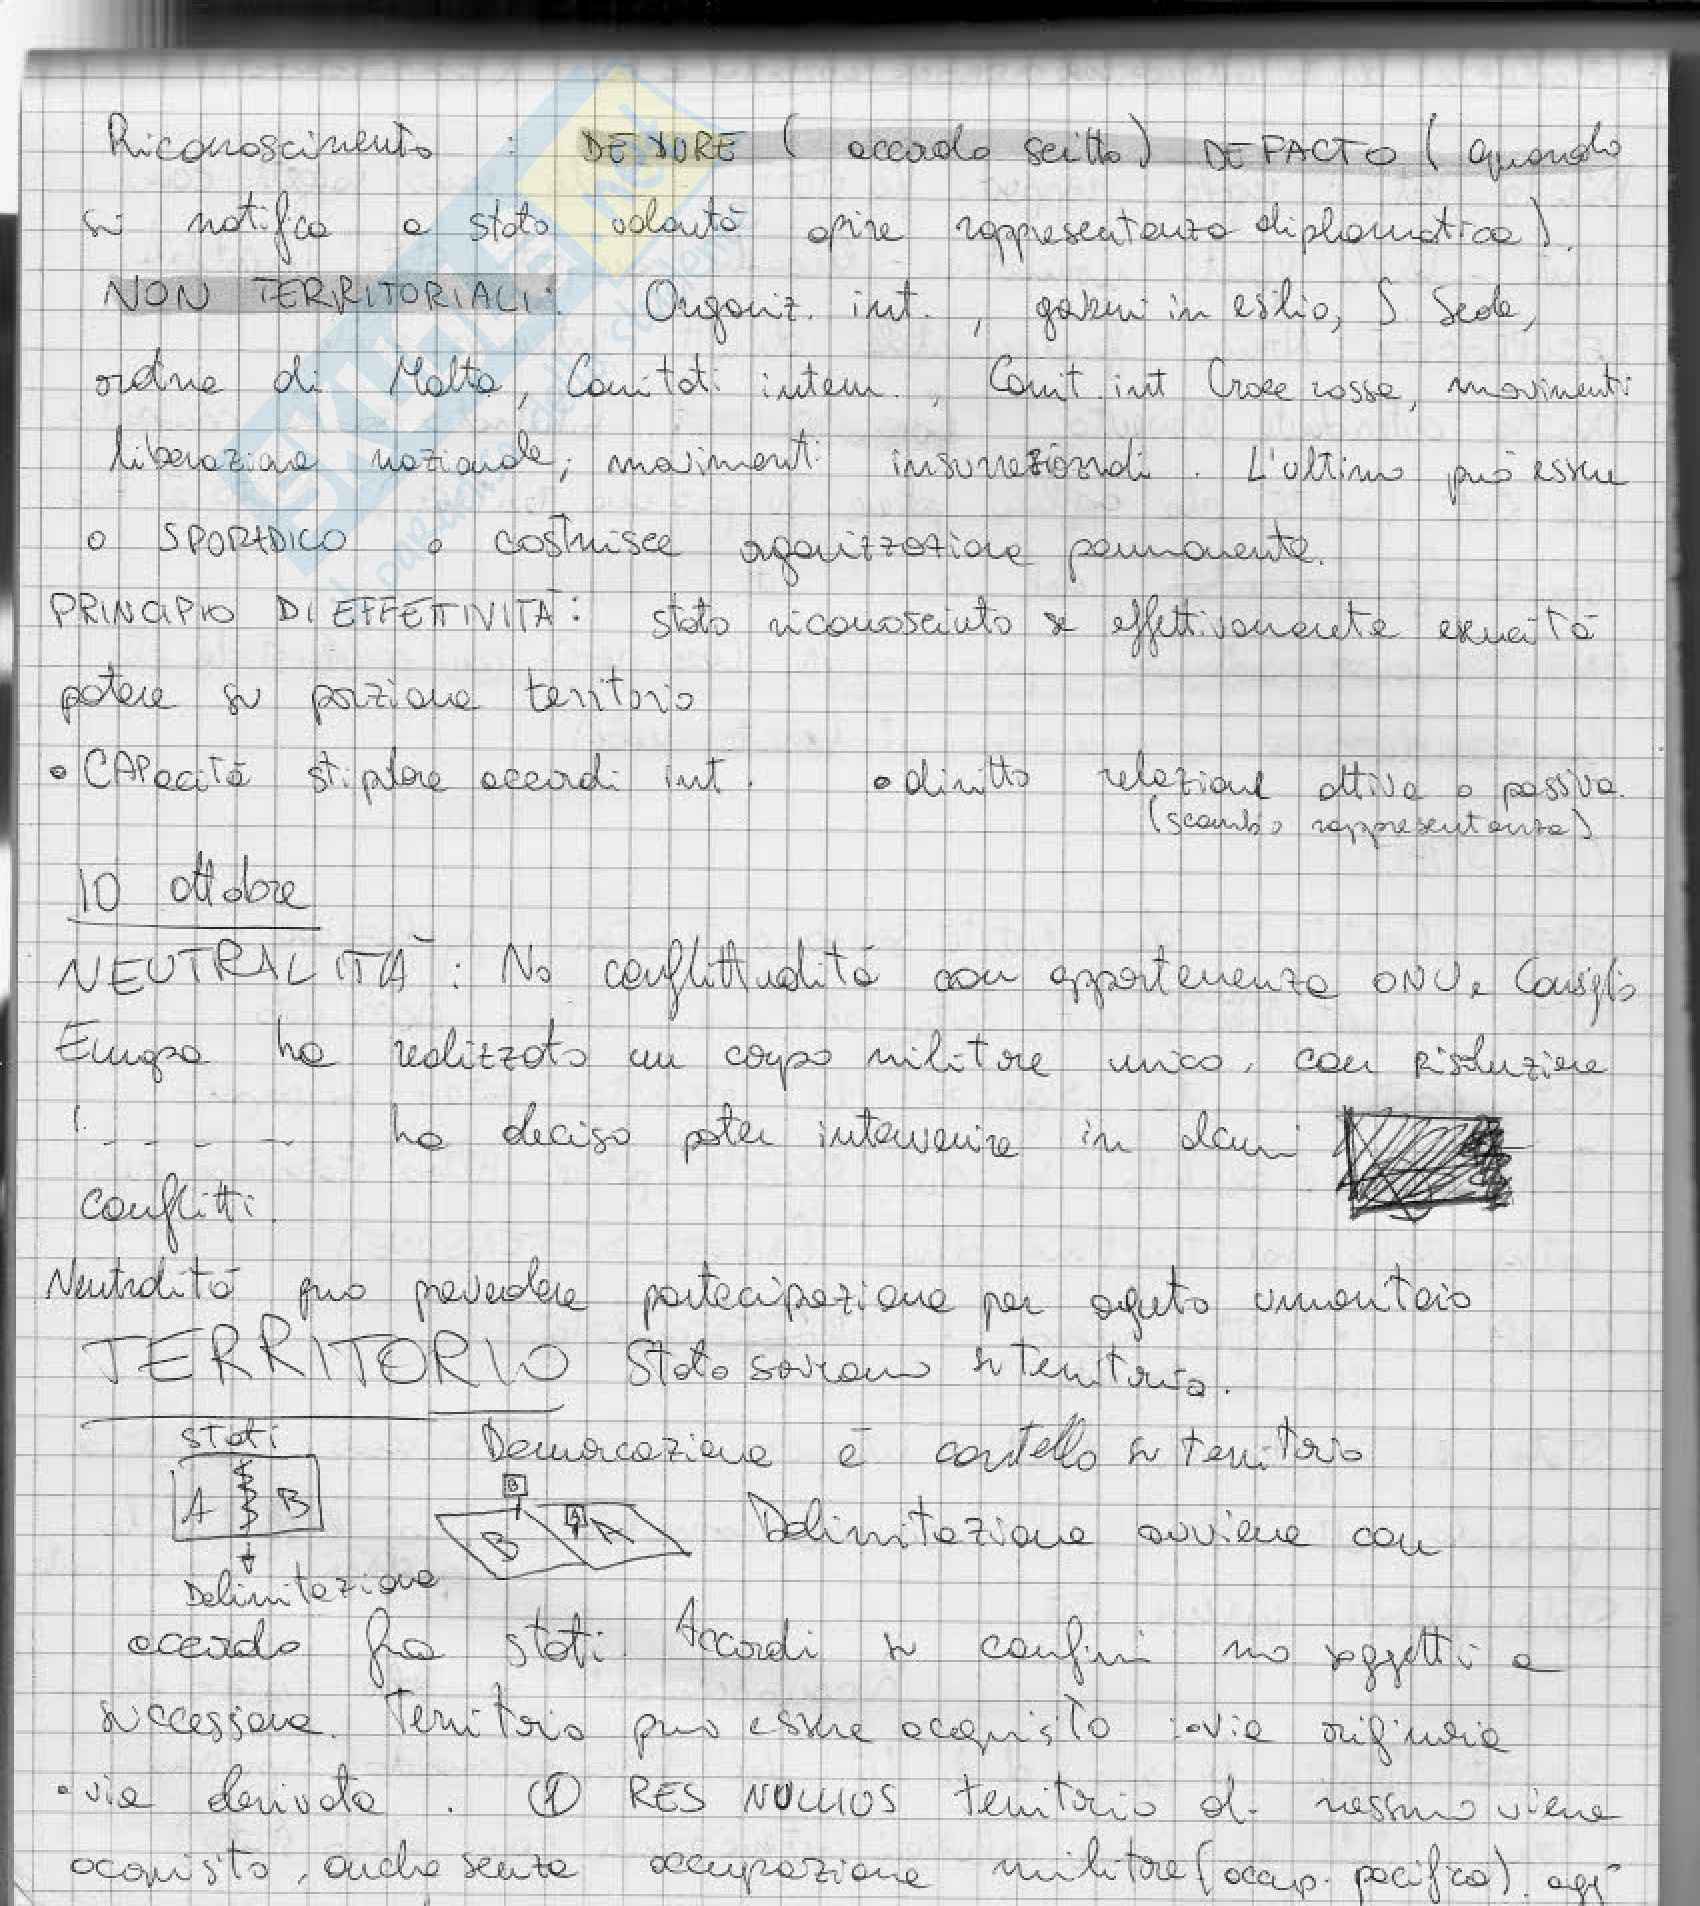 Riconoscimento : DE JURE ( accordo scitto ) DE FACTO ( quando
si notifca a stato volontà aprire rappresentanza diplomatica ).
NON TERRITORIALI : Organiz. int. , governi in esilio, S. Sede,
ordine di Malta, Comitati intern. , Comit. int Croce rossa, movimenti
liberazione nazionale, movimenti insurrezionali . L'ultimo può essere
o SPORADICO o costruisce organizzazione permanente.
PRINCIPIO DI EFFETTIVITÀ : stato riconosciuto se effettivamente esercita
potere su porzione territorio
• CAPacità stipulare accordi int. • diritto relazione attiva o passiva.
(scambio rappresentanza)
10 ottobre
NEUTRALITÀ : No conflittualità con appartenenza ONU. Consiglio
Europa ha realizzato un corpo militare unico, con risoluzione
- - - - - ha deciso poter intervenire in alcuni
conflitti.
Neutralità può prevedere partecipazione per aiuto umanitario
TERRITORIO Stato sovrano su territorio.
stati Demarcazione è cartello su territorio
A B B B A A Delimitazione avviene con
Delimitazione
accordo fra stati. Accordi su confini no soggetti a
successione. Territorio può essere acquisito : • via originaria
• via derivata . ① RES NULLIUS territorio di nessuno viene
acquisito, anche senza occupazione militare (occup. pacifica).
SKUOLA.net